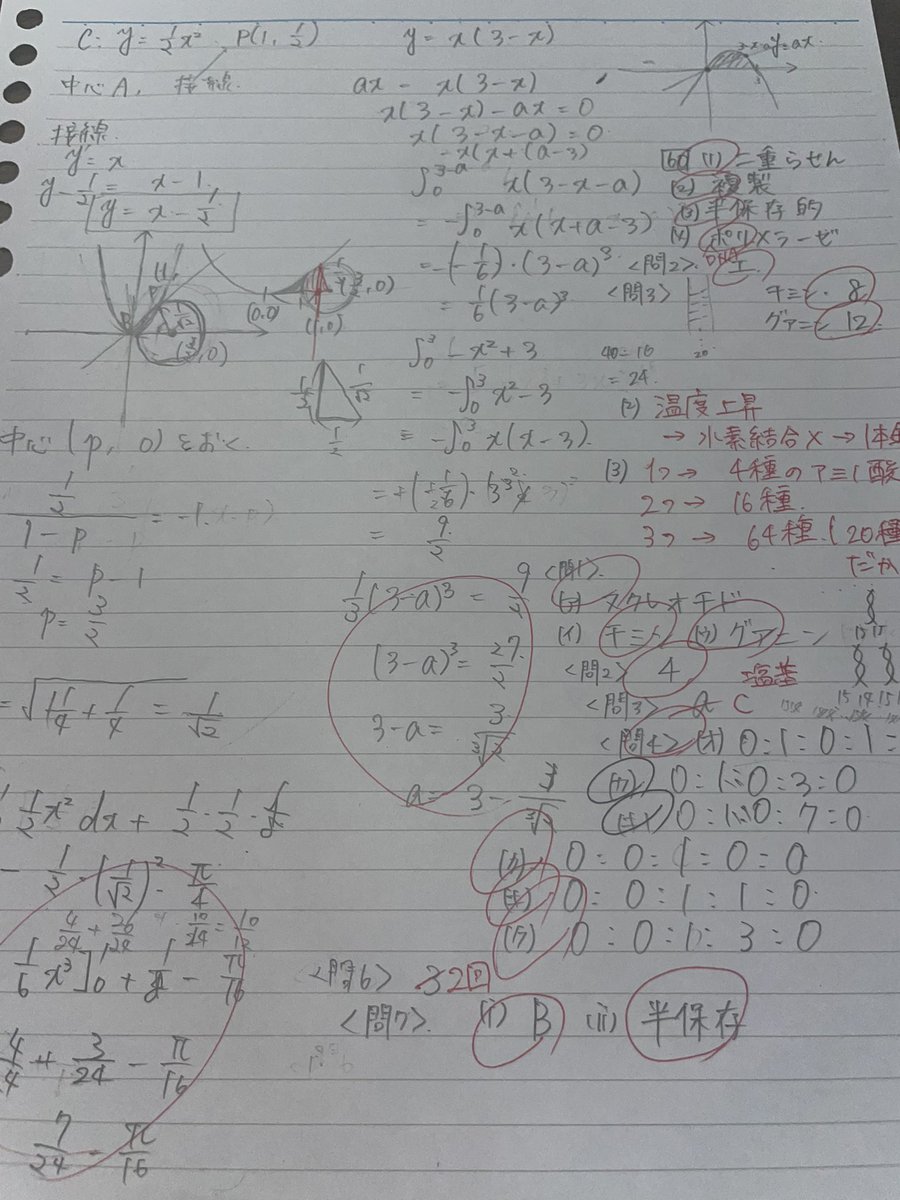 C: y = 1/2 x² P(1, 1/2)
中心A, 接線
接線
y' = x
y - 1/2 = x - 1
y = x - 1/2
(3/2, 0)
(0,0)
(1,0)
中心(p, 0)とおく
(1/2)/(1-p) = -1
1/2 = p - 1
p = 3/2
= √(1/4 + 1/4) = 1/√2
1/2 x² dx + 1/2・1/2・
- 1/2・(1/√2)²・π/4
4/24 + 36/24
1/6 x³]₀¹ + 1/8 - π/16
4/4 + 3/24 - π/16
7/24 - π/16
y = x(3-x)
ax - x(3-x)
x(3-x) - ax = 0
x(3-x-a) = 0
-x(x+(a-3)
∫₀^(3-a) x(3-x-a)
= -∫₀^(3-a) x(x+a-3)
= -(-1/6)・(3-a)³
= 1/6(3-a)³
∫₀³ -x²+3
= -∫₀³ x²-3
= -∫₀³ x(x-3)
= 9/2
1/3(3-a)³ = 9/2
(3-a)³ = 27/2
3-a = 3/∛2
a = 3 - 3/∛2
y=ax
60 (1) 二重らせん
(2) 複製
(3) 半保存的
(4) ポリメラーゼ
DNA
<問2> エ
<問3>
チミン 8
グアニン 12
20
40=16
=24
(2) 温度上昇
→ 水素結合× → 1本
(3) 1つ → 4種のアミノ酸
2つ → 16種
3つ → 64種(20種
だか
<問1>
(ア) ヌクレオチド
(イ) チミン (ウ) グアニン
<問2> 4 塩基
<問3> C
15 14 15
<問4> (オ) 0:1:0:1=
(カ) 0:1:0:3:0
(キ) 0:1:0:7:0
(カ) 0:0:1:0:0
(キ) 0:0:1:1:0
(ク) 0:0:1:3:0
<問6> 32回
<問7> (i) B (ii) 半保存